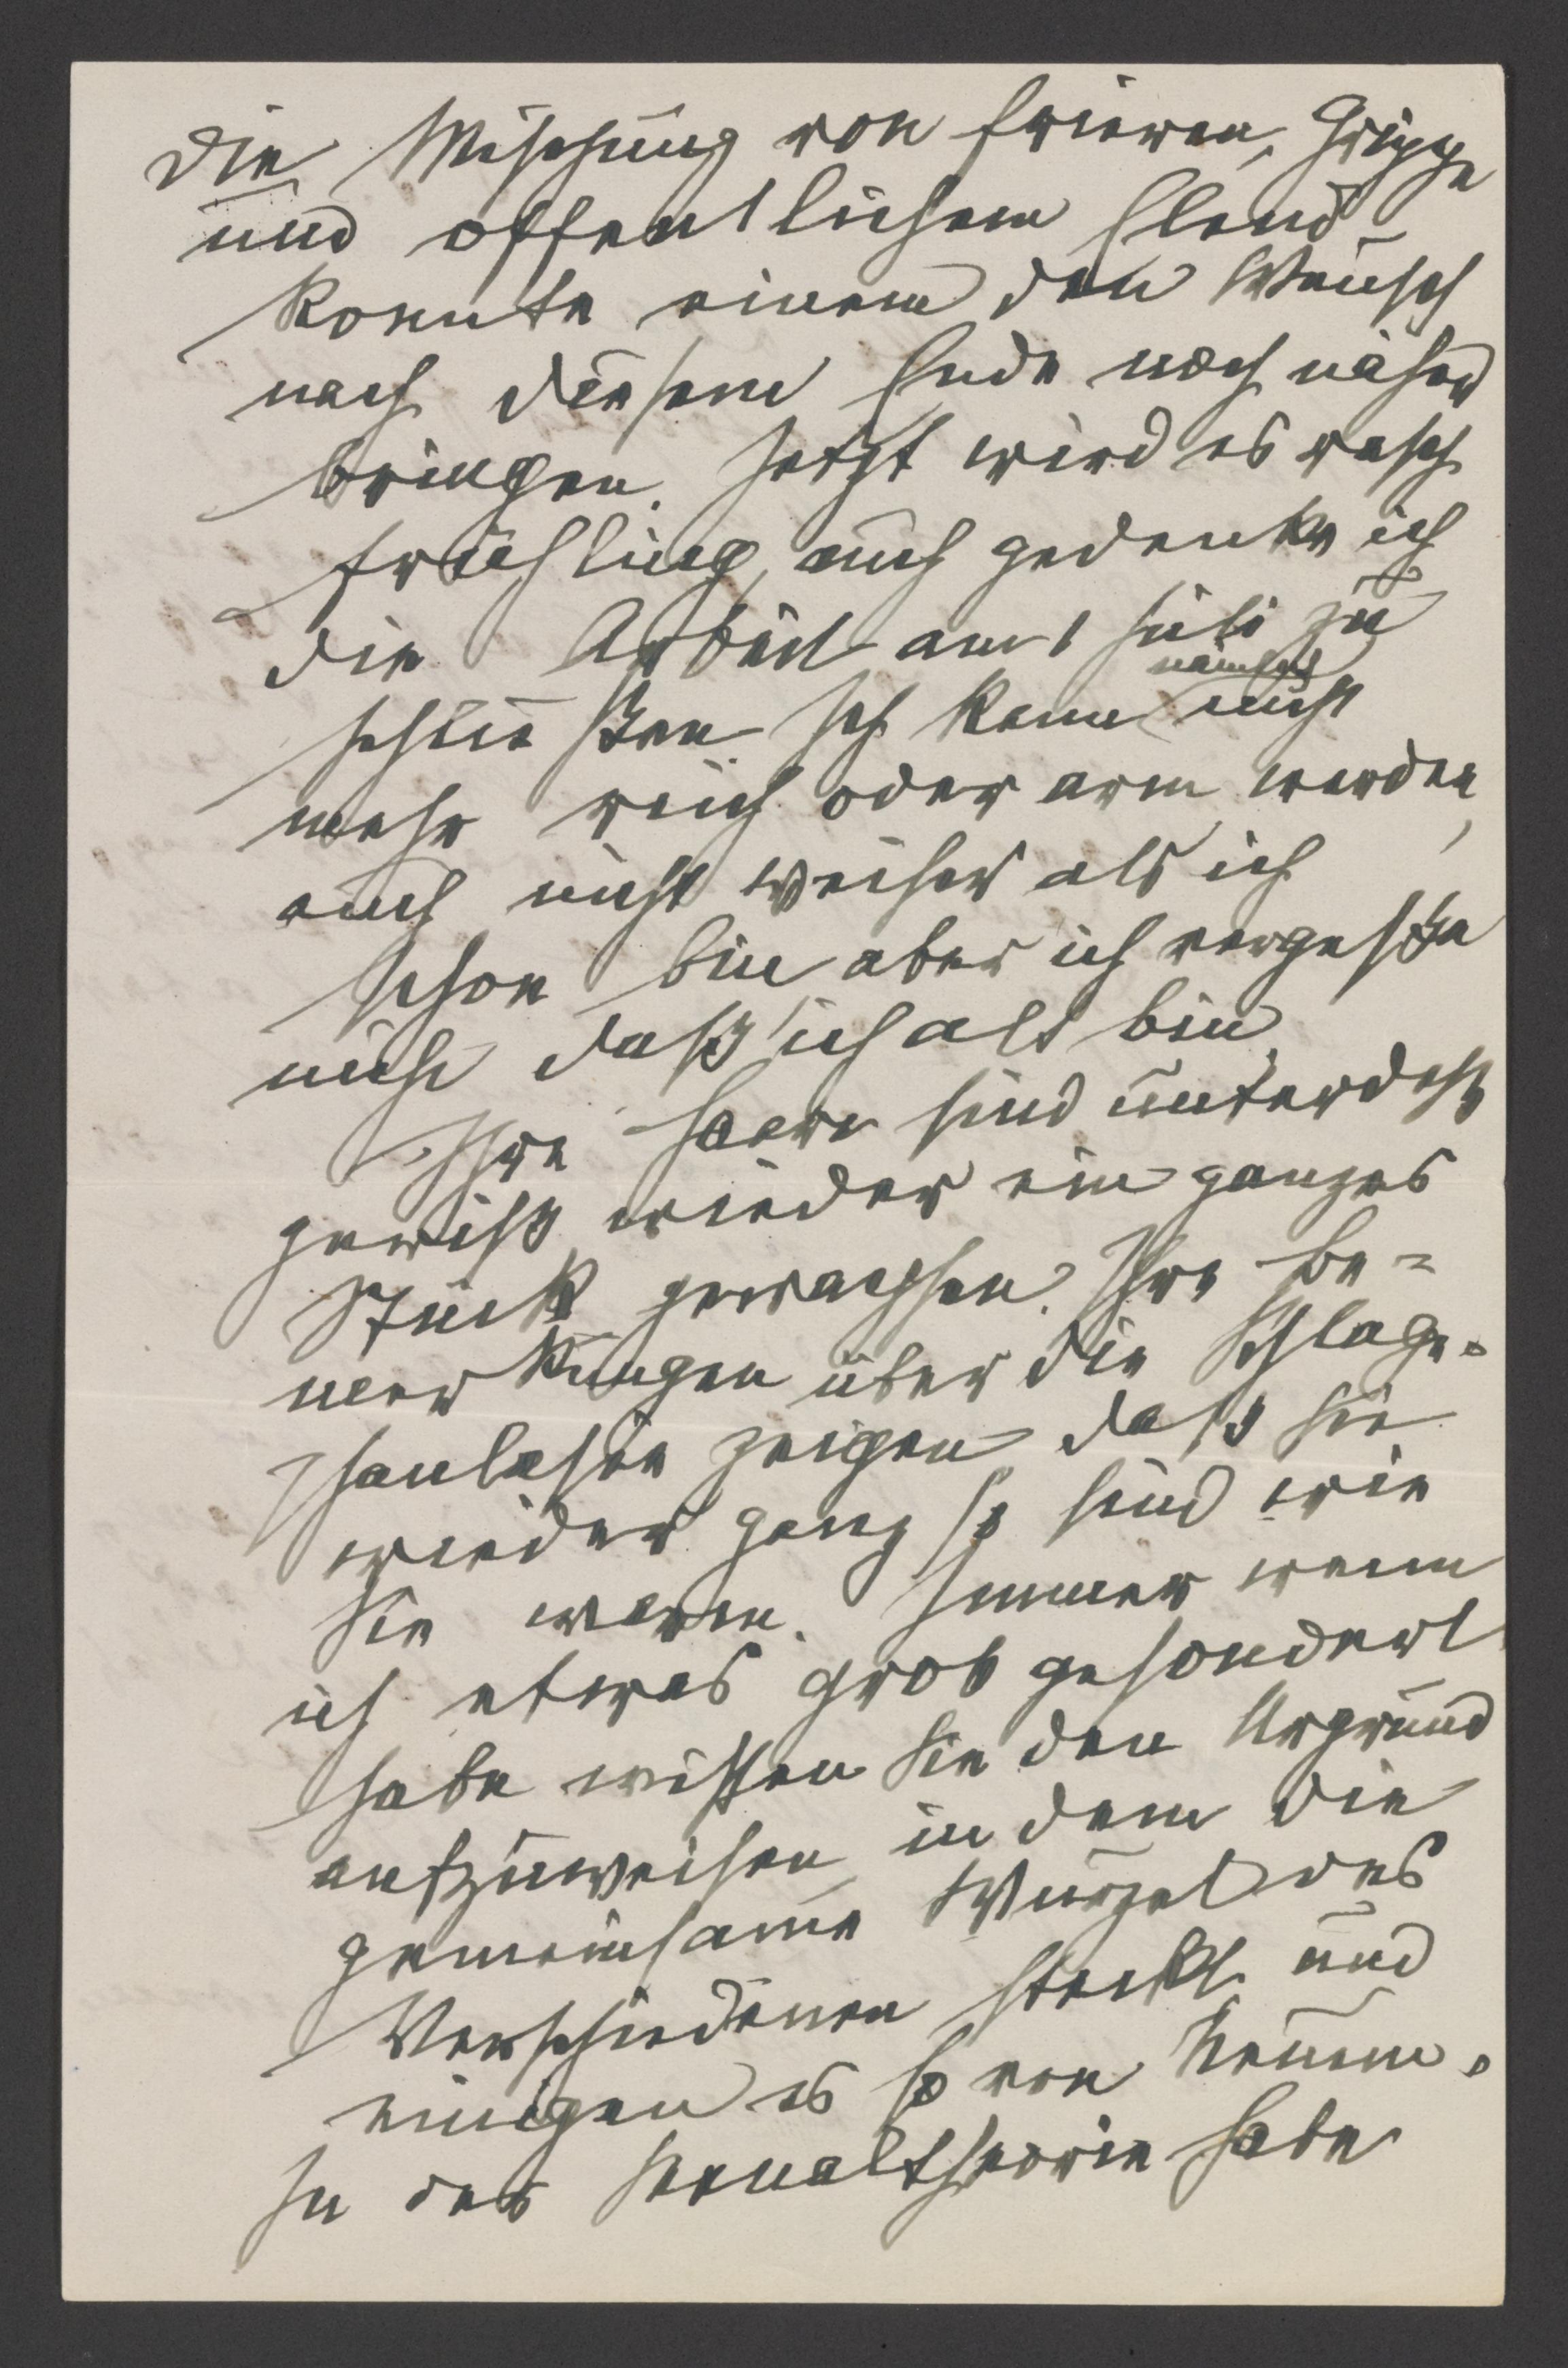 Die Mischung von Frieren, Grippe
und öffentlichem Elend
konnte einem den Wunsch
nach diesem Ende noch näher
bringen. Jetzt wird es rasch
Frühling, auch gedenke ich
die Arbeit am 1 Juli zu
schließen Ich kann nämlich nicht
mehr reich oder arm werden,
auch nicht weiser als ich
schon bin aber ich vergesse
nicht daß ich alt bin.
Ihre Haare sind unterdeß
gewiß wieder ein ganzes
Stück gewachsen. Ihre Be=
merkungen über die Schlage-
phantasie zeigen daß Sie
wieder ganz so sind wie
Sie waren. Immer wenn
ich etwas grob gesondert
habe wissen Sie den Urgrund
aufzuweisen in dem die
gemeinsame Wurzel des
Verschiedenen steckt und
einigen es so von Neuem.
In der Sexualtheorie habe